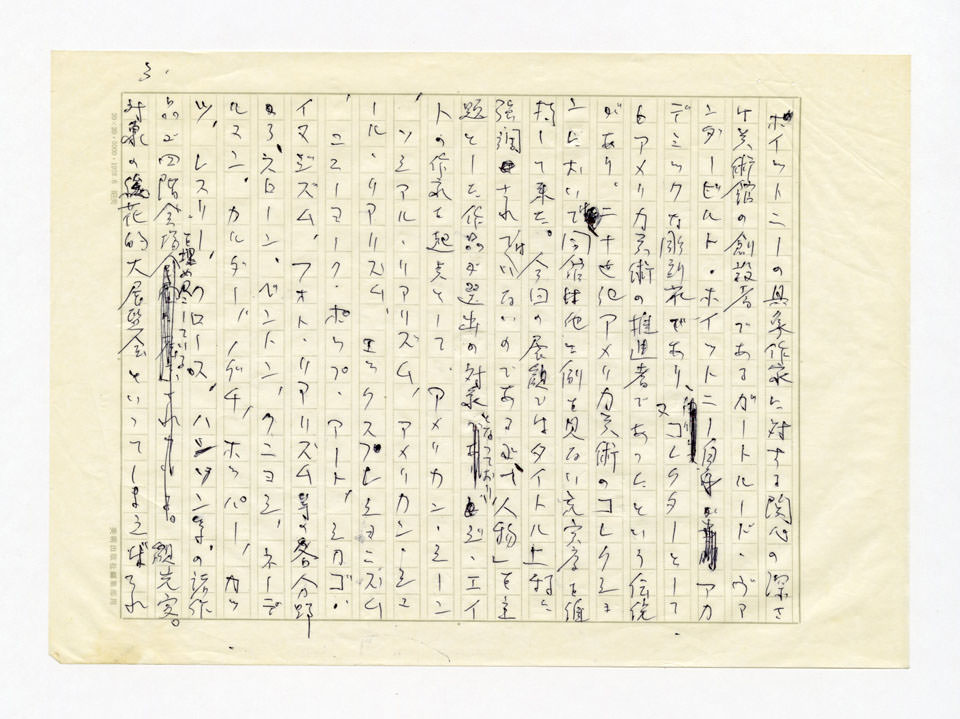 3.
ホイットニーの具象作家に対する関心の深さ
は美術館の創設者であるガートルード・ヴァ
ンダービルト・ホイットニー自身がアカ
デミックな彫刻家であり、又コレクターとして
もアメリカ美術の推進者であったという伝統
があり、二十世紀アメリカ美術のコレクショ
ンにおいて同館は他に例を見ない充実度を維
持して来た。今回の展観ではタイトル上特に
強調はされていないのであるが「人物」を主
題とした作品が選出の対象となっており、
トの作家を起点として、アメリカン・シーン
ソシアル・リアリズム、アメリカン・シュ
ール・リアリズム、エックスプレショニズム
、ニューヨーク・ポップ・アート、シカゴ・
イマジズム、フォト・リアリズム等の各分野
から、スローン、ベントン、クニヨシ、ネーデ
ルマン、カルダー、ノグチ、ホッパー、カッ
ツ、レスリー、クロース、ハンソン等の諸作
品で四階会場を埋め尽している。
対象の
大展覧会といってしまえばそれ